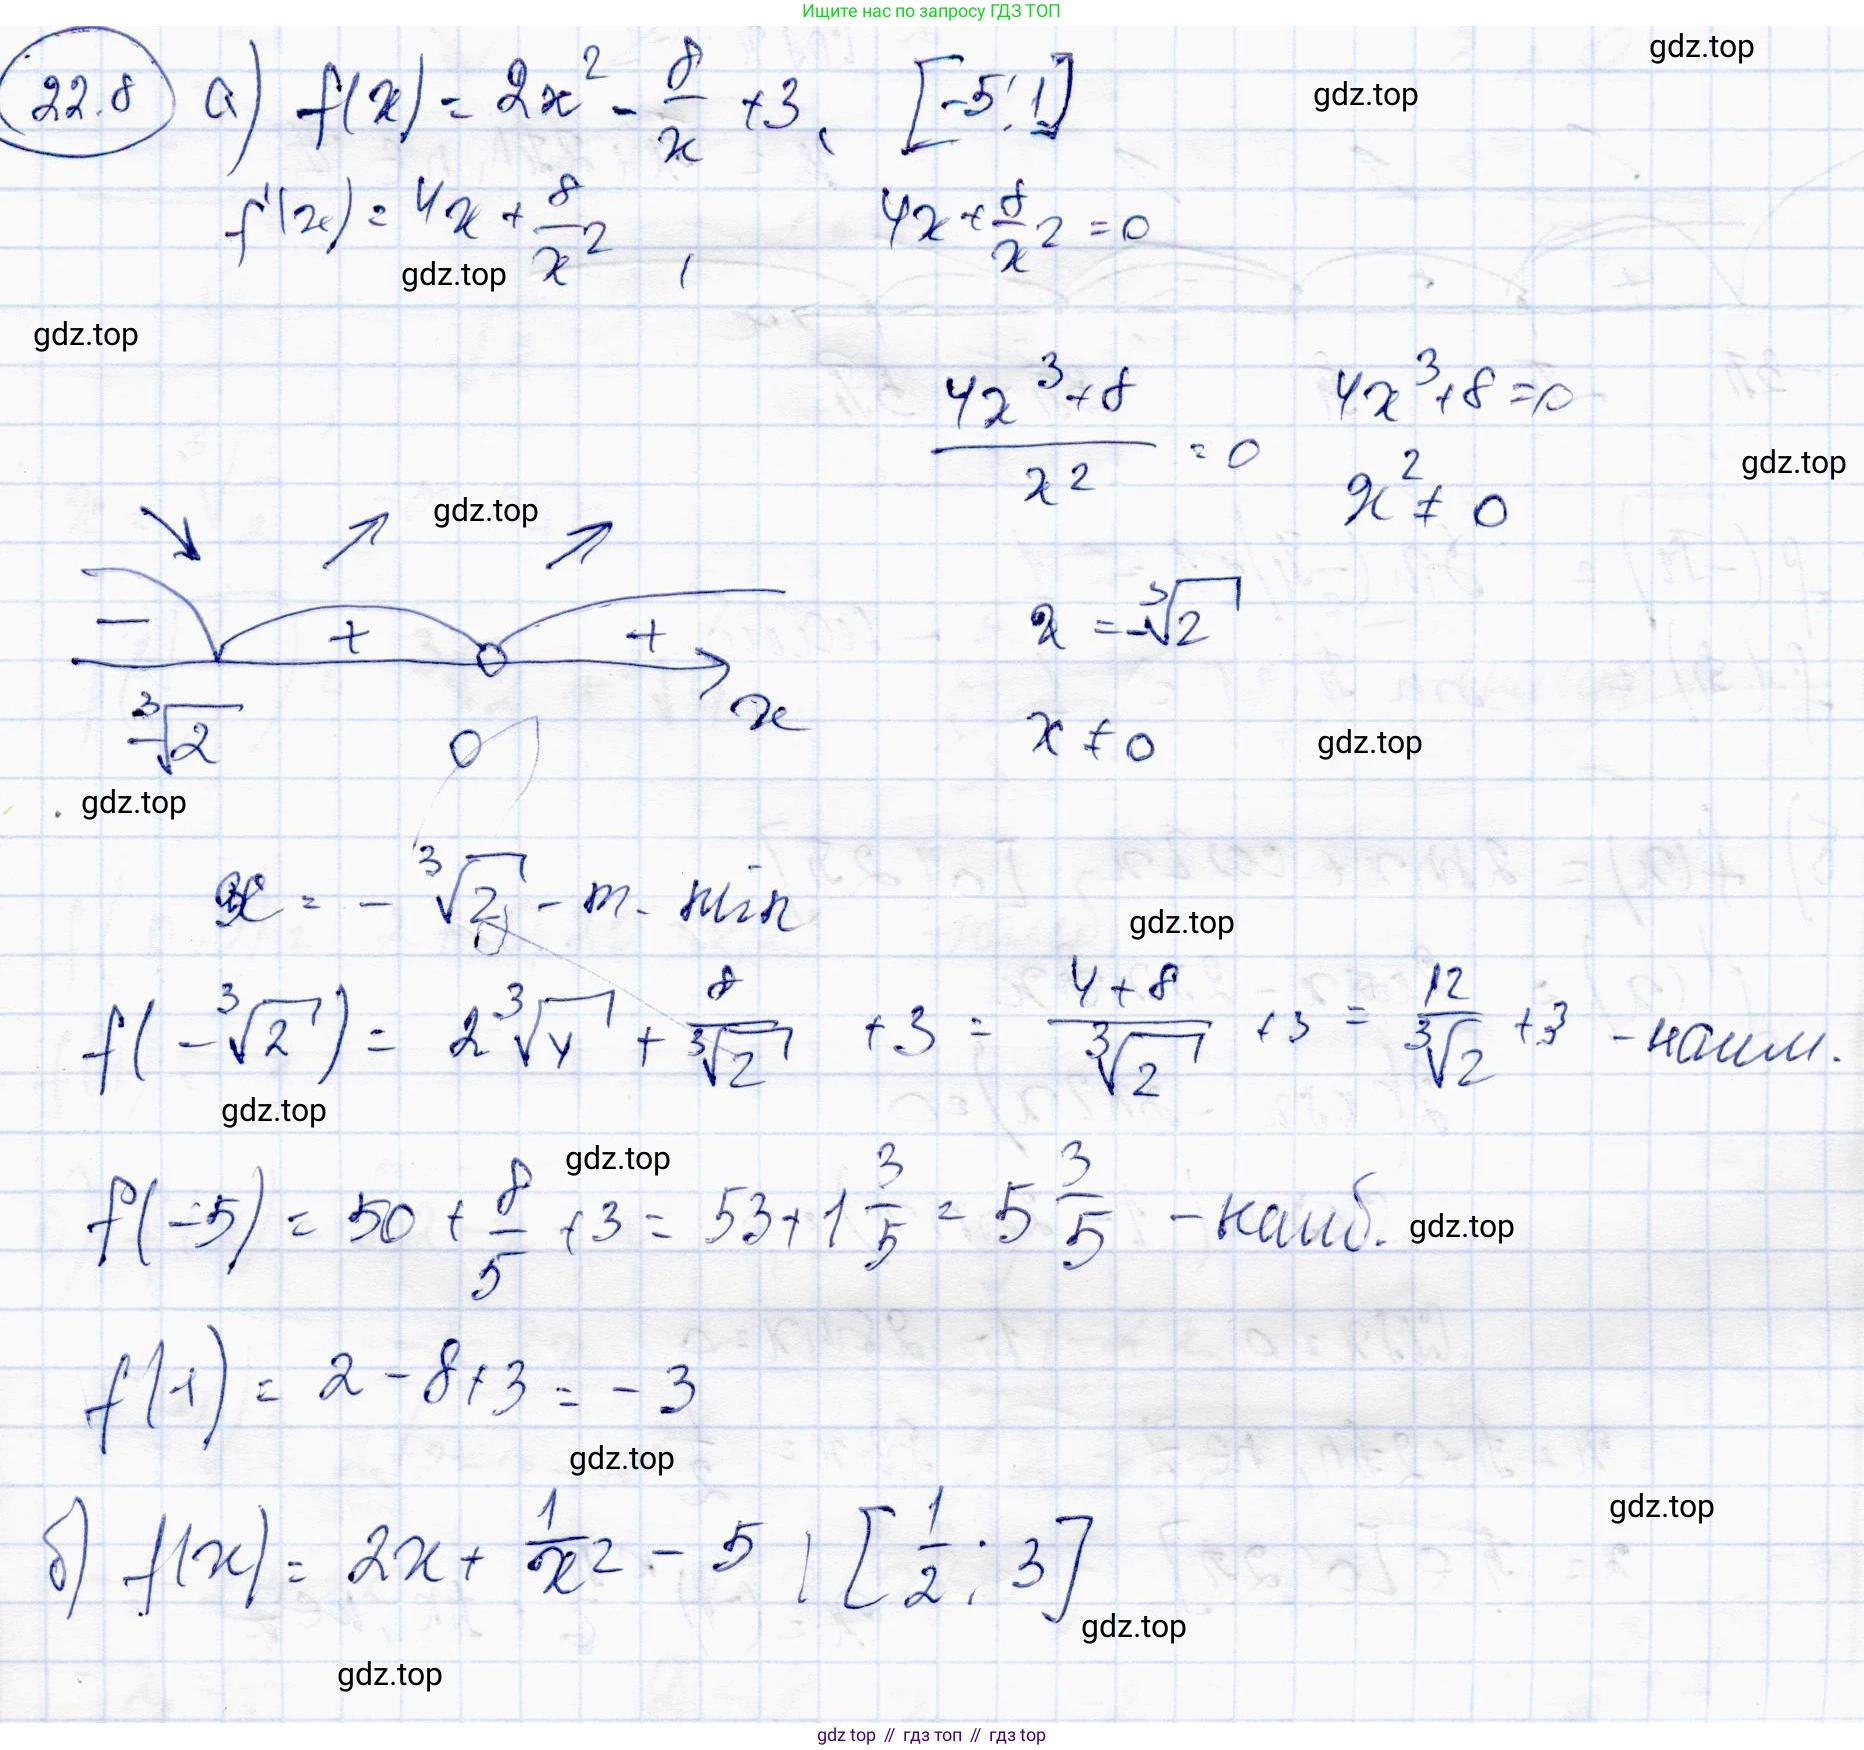 Ищите нас по запросу ГДЗ ТОП
gdz.top
22.8 а) f(x) = 2x² - 8/x + 3, [-5; 1]
gdz.top
f'(x) = 4x + 8/x², 4x + 8/x² = 0
gdz.top
gdz.top
(4x³+8)/x² = 0 4x³+8=0
x² ≠ 0
gdz.top
gdz.top
- + +
x = -∛2
-∛2 0 x
x ≠ 0
gdz.top
gdz.top
x = -∛2 - т. min
gdz.top
f(-∛2) = 2∛4 + 8/∛2 + 3 = (4+8)/∛2 + 3 = 12/∛2 + 3 - наим.
gdz.top
gdz.top
f(-5) = 50 + 8/5 + 3 = 53 + 1 3/5 = 5 3/5 - наиб.
gdz.top
f(1) = 2 - 8 + 3 = - 3
gdz.top
gdz.top
б) f(x) = 2x + 1/x² - 5, [1/2; 3]
gdz.top
gdz.top
gdz top // гдз топ // гдз top